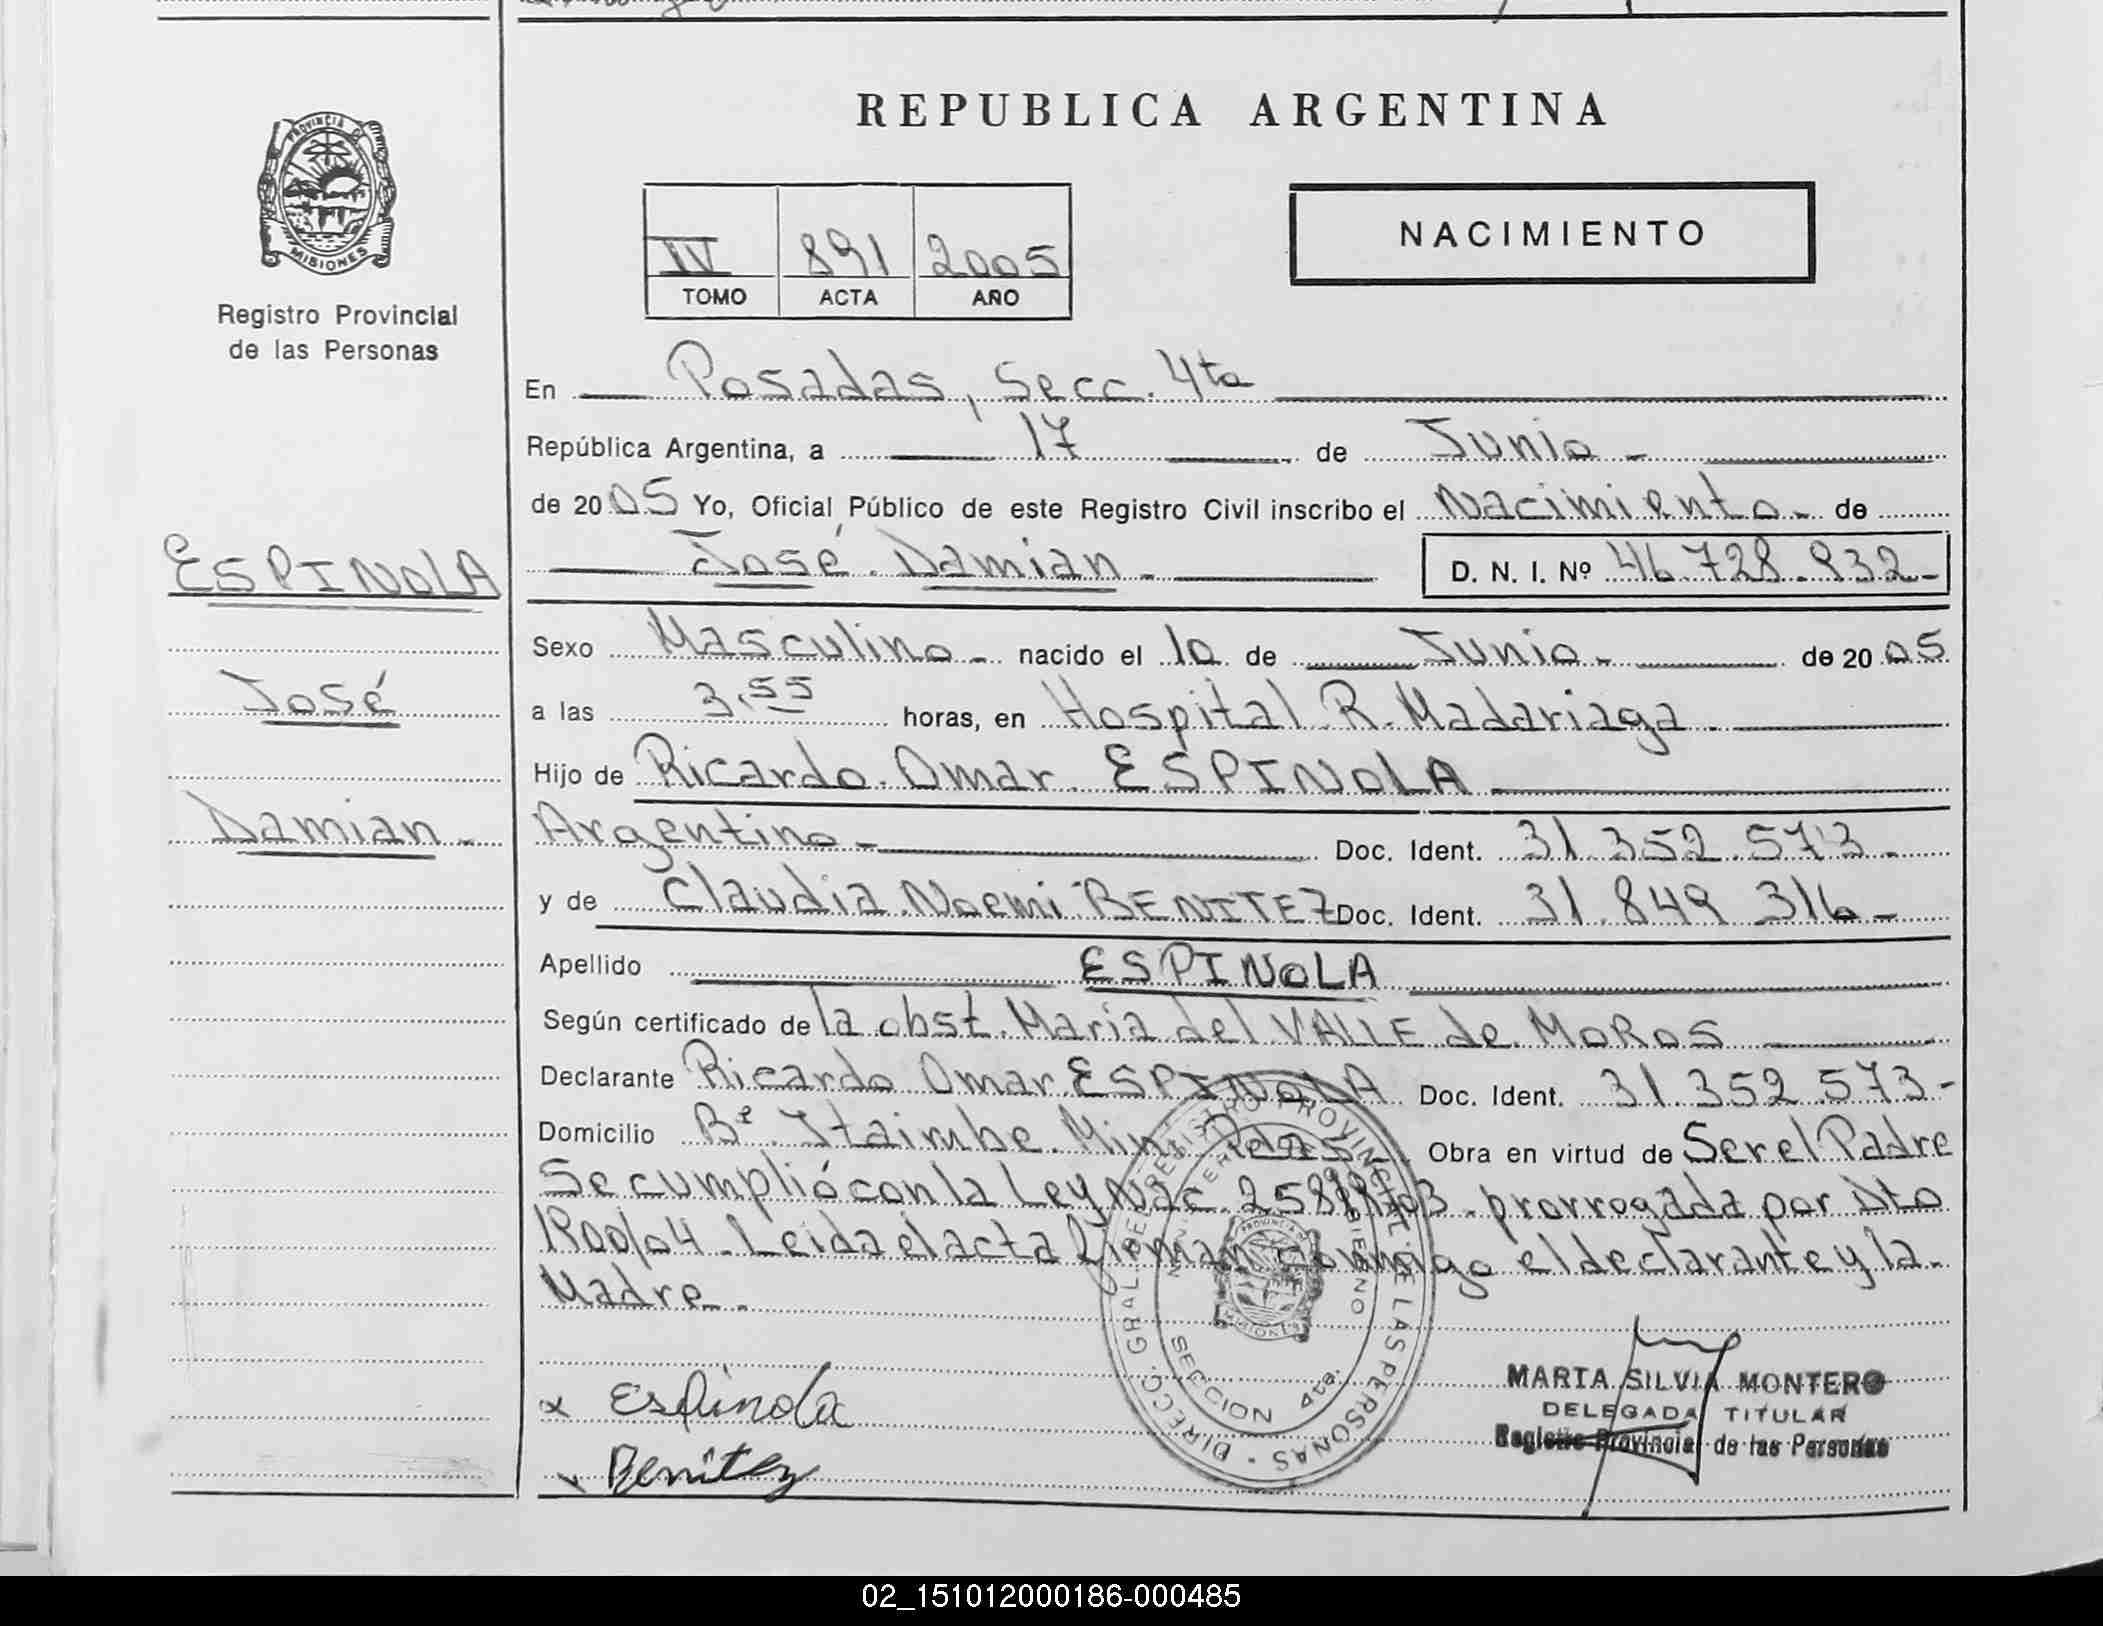 REPUBLICA ARGENTINA
PROVINCIA DE
MISIONES
Registro Provincial
de las Personas
NACIMIENTO
IV 891 2005
TOMO ACTA AÑO
En Posadas, Secc. 4ta
República Argentina, a 17 de Junio -
de 2005 Yo, Oficial Público de este Registro Civil inscribo el Nacimiento - de
José Damian - D. N. I. Nº 46.728.932-
ESPINOLA
José
Damian -
Sexo Masculino - nacido el 10 de Junio - de 2005
a las 3,55 horas, en Hospital R. Madariaga
Hijo de Ricardo Omar ESPINOLA
Argentino - Doc. Ident. 31.352.573-
y de Claudia Noemi BENITEZ Doc. Ident. 31.849.316-
Apellido ESPINOLA
Según certificado de la obst. Maria del VALLE de MOROS
Declarante Ricardo Omar ESPINOLA Doc. Ident. 31.352.573-
Domicilio Bº Itaimbe Mini Pdas - Obra en virtud de Ser el Padre
Se cumplió con la Ley Nac. prorrogada por Dto
1900/04 - Leida el acta firman conmigo el declarante y la
Madre -
x Espinola
x Benitez
DIRECC. GRAL. DE REGISTRO PROVINCIAL DE LAS PERSONAS
SECCION 4ta.
MISIONES
MARTA SILVIA MONTERO
DELEGADA TITULAR
Registro Provincial de las Personas
02_151012000186-000485